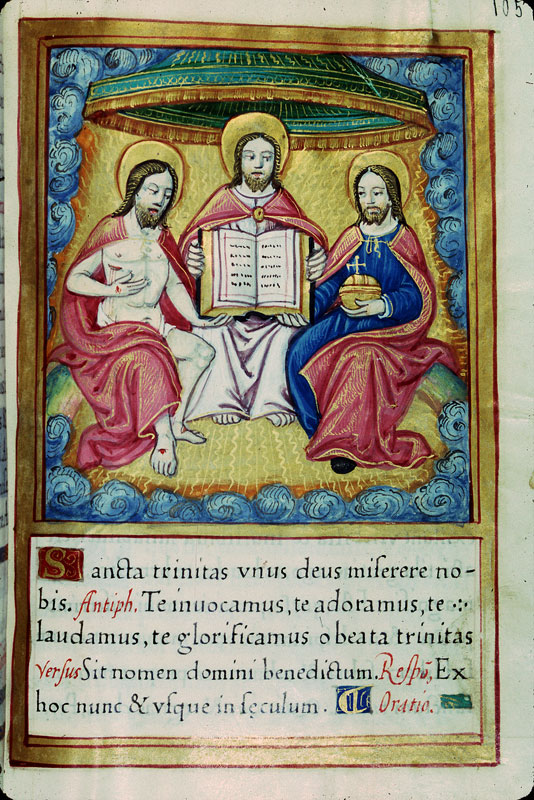 105
Sancta trinitas vnus deus miserere no-
bis. Antiph. Te inuocamus, te adoramus, te
laudamus, te glorificamus o beata trinitas
Versus Sit nomen domini benedictum. Respõ, Ex
hoc nunc & vsque in sęculum. Oratio.